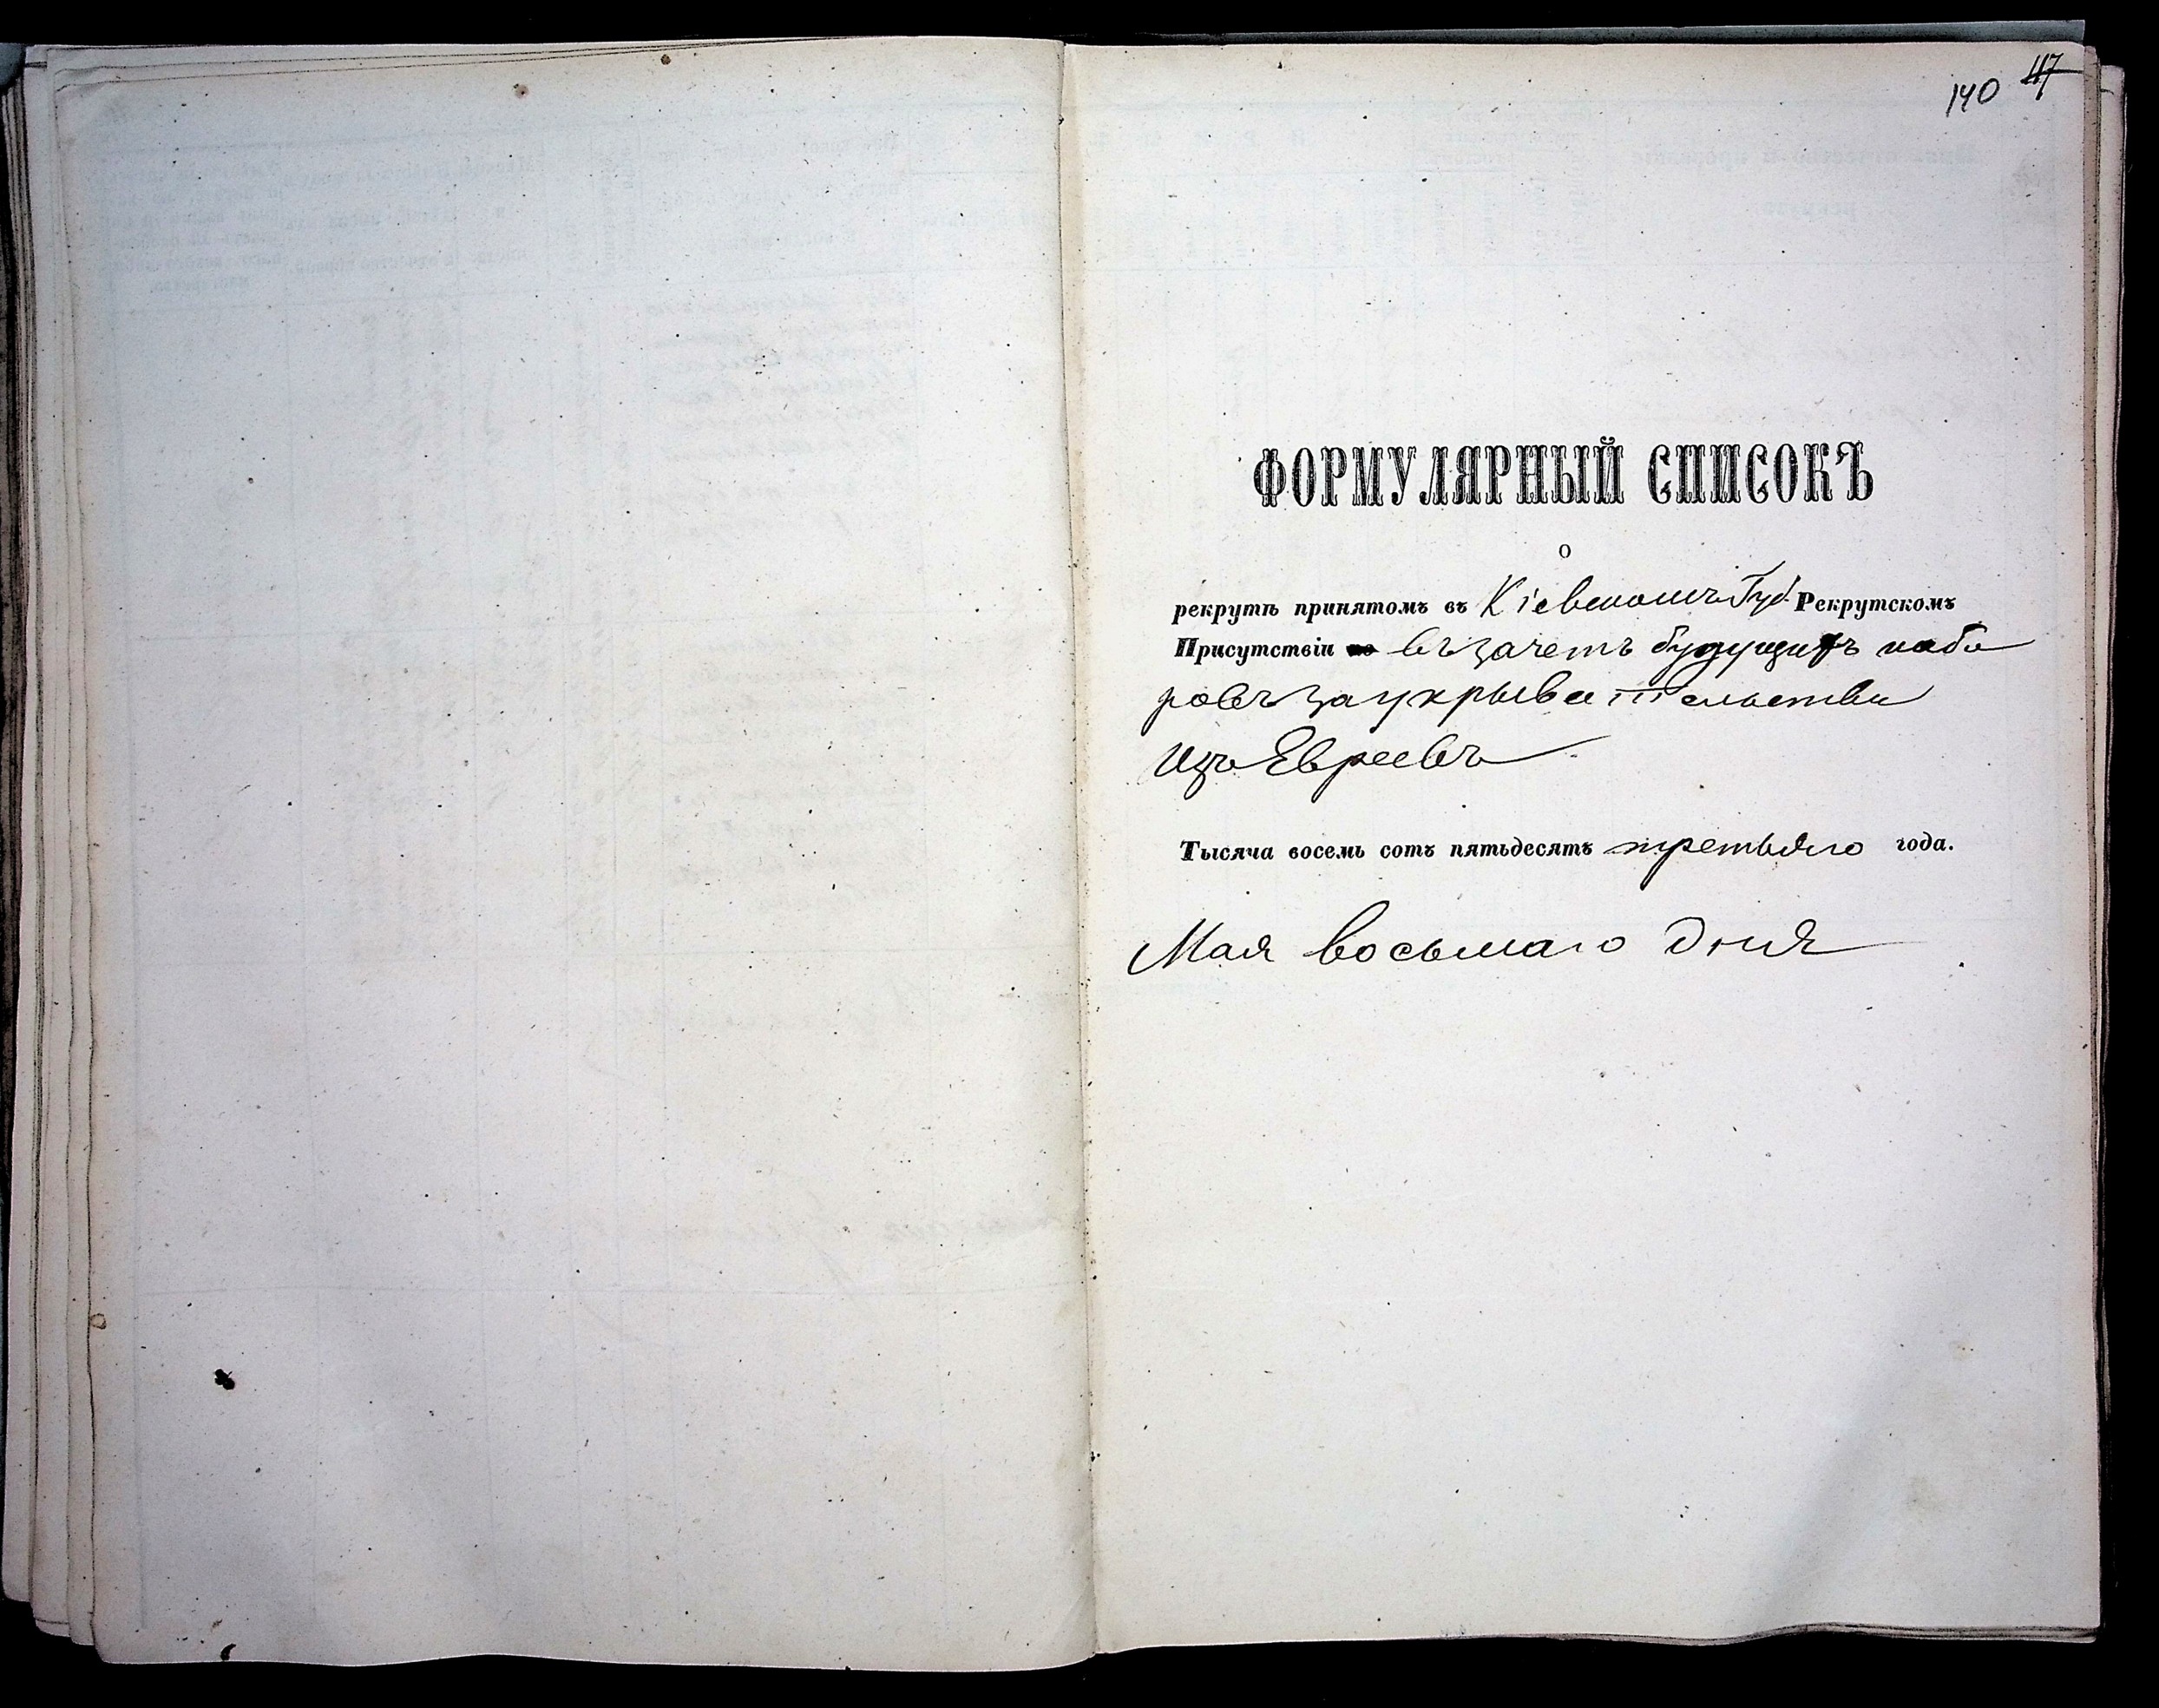 140 117
ФОРМУЛЯРНЫЙ СПИСОКЪ
о
рекрутѣ принятомъ въ Кіевскомъ Губ. Рекрутскомъ
Присутствіи въ зачетъ будущихъ набо
ровъ за укрывательство
изъ Евреевъ
Тысяча восемь сотъ пятьдесятъ третьяго года.
Мая восьмаго дня